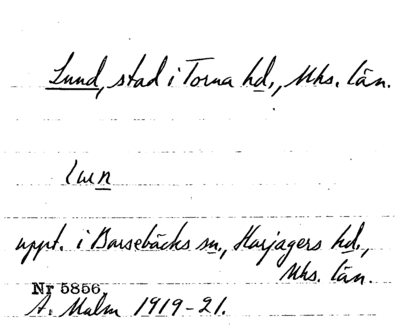 Lund, stad i Torna hd., Mhs. län.
lun
uppt. i Barsebäcks sn., Harjagers hd.,
Mhs. län.
Nr 5856.
A. Malm 1919-21.